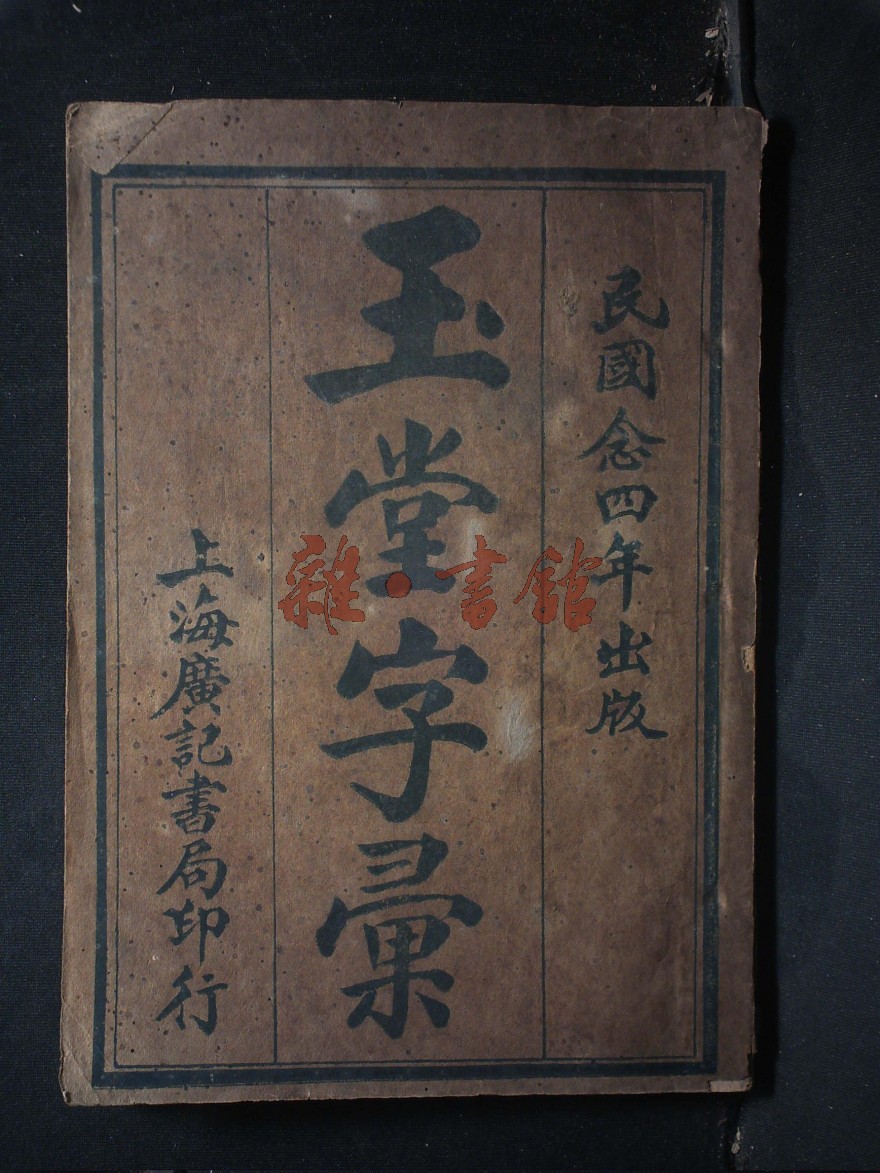 民國念四年出版
玉堂字彙
上海廣記書局印行
雜·書館